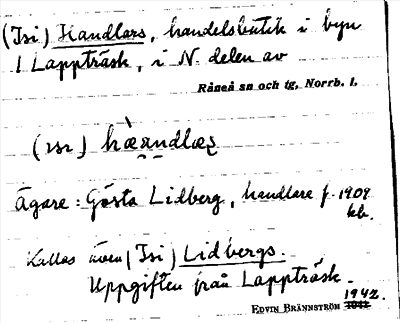 (Isi) Handlars, handelsbutik i byn
1 Lappträsk, i N. delen av
Råneå sn och tg, Norrb. l.
Ägare: Gösta Lidberg, handlare f. 1909
kb.
Kallas även (Isi) Lidbergs.
Uppgiften från Lappträsk.
1942.
EDVIN BRÄNNSTRÖM